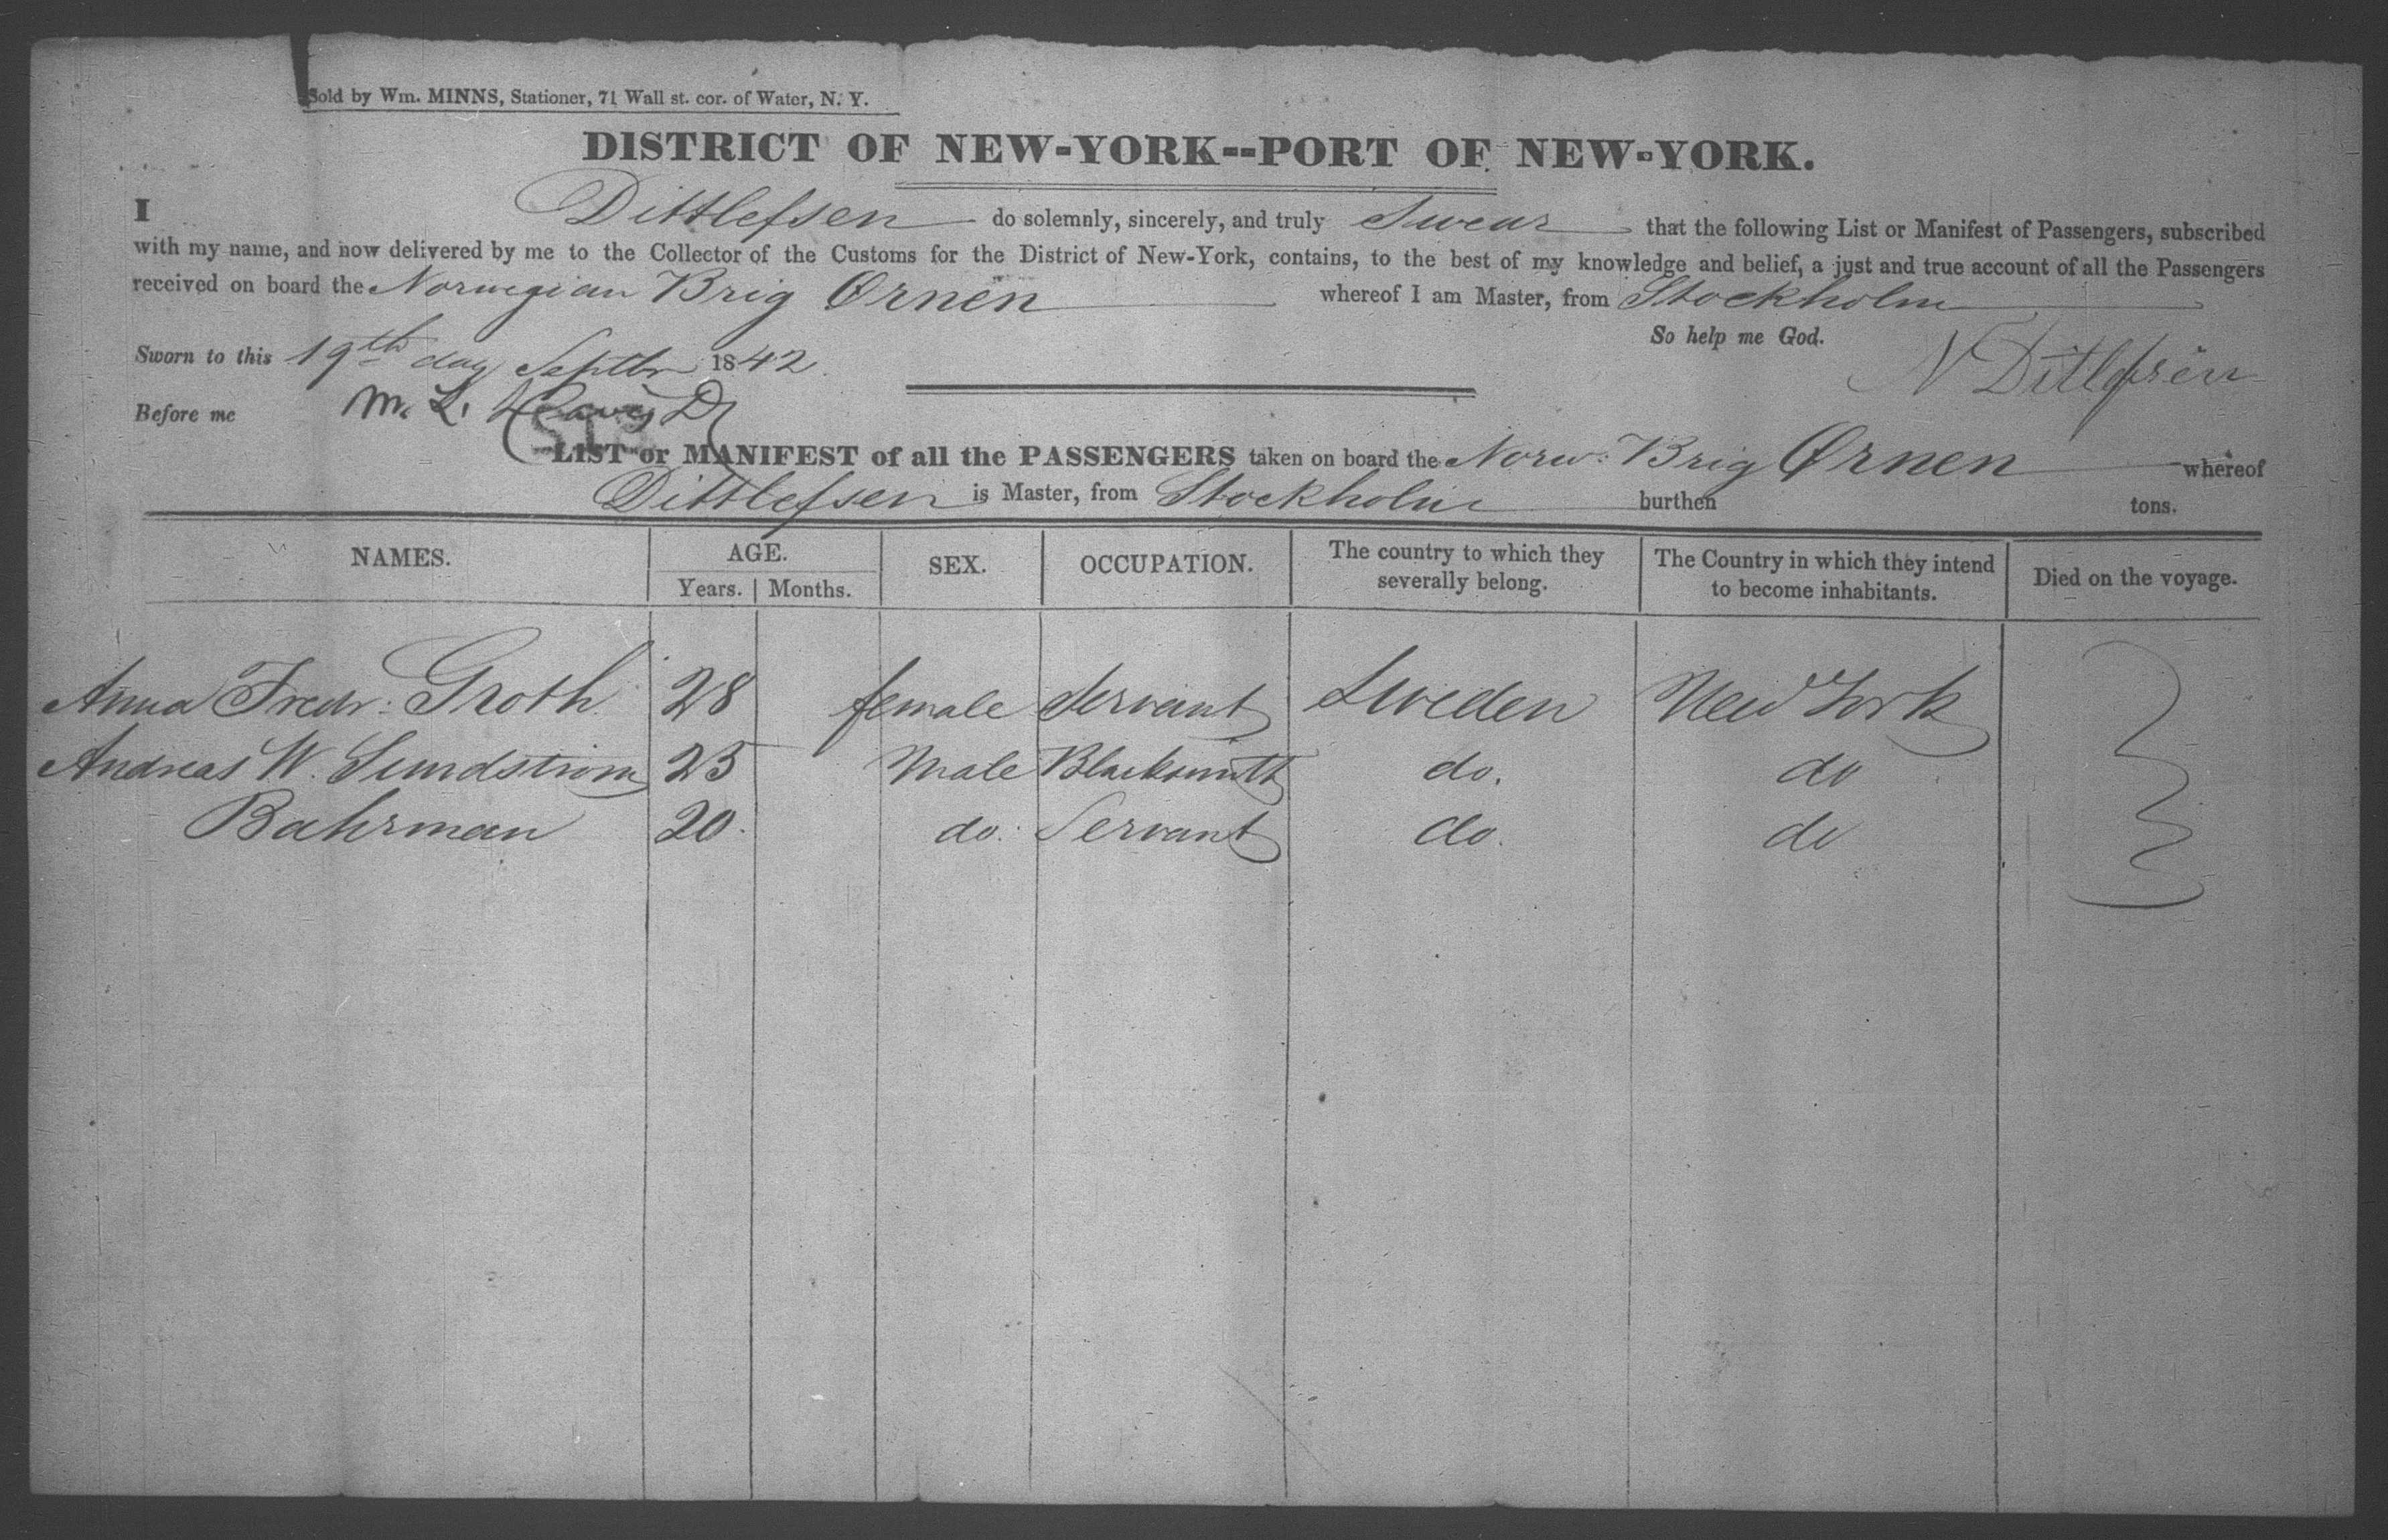 Sold by Wm. MINNS, Stationer, 71 Wall st. cor. of Water, N. Y.
DISTRICT OF NEW-YORK--PORT OF NEW-YORK.
I Dittlefsen do solemnly, sincerely, and truly Swear that the following List or Manifest of Passengers, subscribed
with my name, and now delivered by me to the Collector of the Customs for the District of New-York, contains, to the best of my knowledge and belief, a just and true account of all the Passengers
received on board the Norwegian Brig Ørnen whereof I am Master, from Stockholm
So help me God.
Sworn to this 19th day Septbr 1842. N Ditlefsen
Before me M. L.
LIST or MANIFEST of all the PASSENGERS taken on board the Norw: Brig Ørnen whereof
Dittlefsen is Master, from Stockholm burthen tons.
NAMES. AGE. Years. Months. SEX. OCCUPATION. The country to which they severally belong. The Country in which they intend to become inhabitants. Died on the voyage.
Anna Fredr: Groth 28 female Servant Sweden New York
Andreas W. Sundstrom 25 Male Blacksmith do. do
Bahrman 20. do. Servant do. do